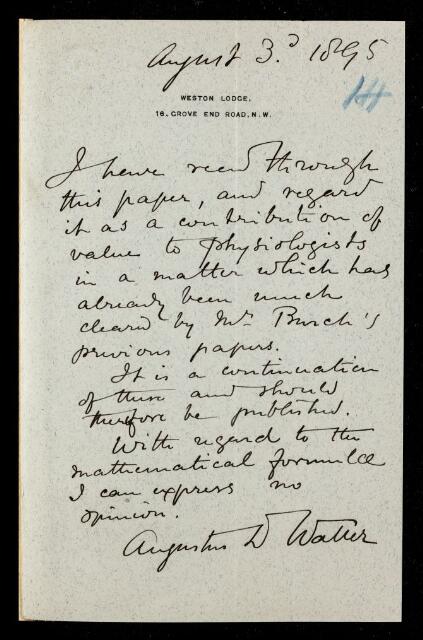 August 3.d 1895
WESTON LODGE,
16, GROVE END ROAD, N.W.
I have read through
this paper, and regard
it as a contribution of
value to physiologists
in a matter which has
already been much
cleared by Mr Burch's
previous papers.
It is a continuation
of these and should
therefore be published.
With regard to the
mathematical formulae
I can express no
opinion.
Augustus D Waller